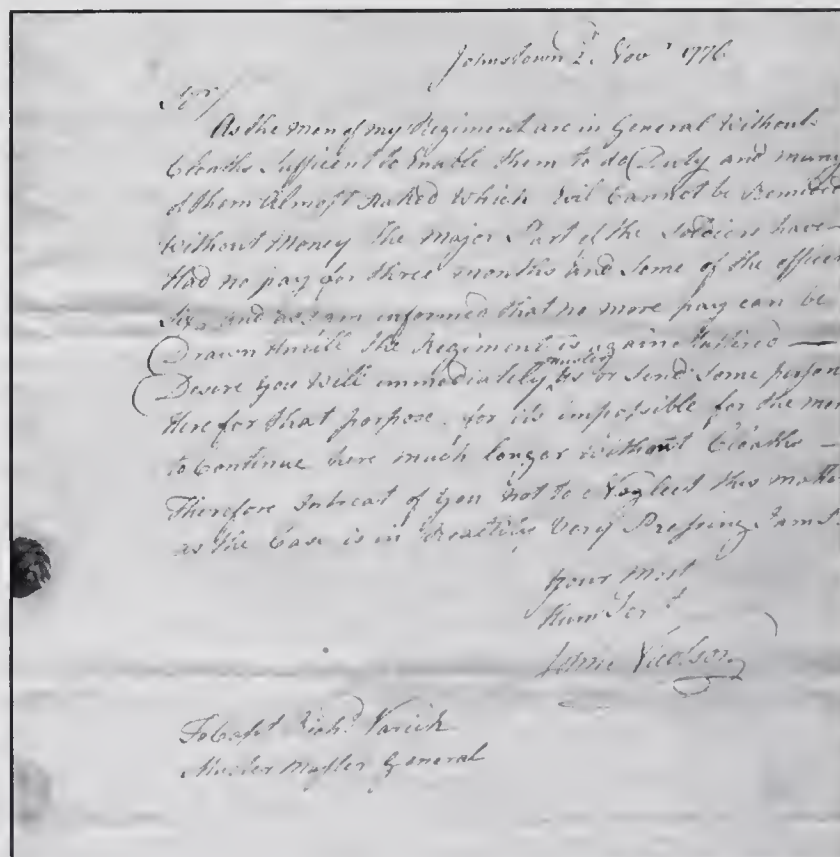 Johnstown 2d. Nov r 1776
Sir/
As the men of my Regiment are in General Without
Cloaths Sufficent to Enable them to do Duty and many
of them Almost Naked Which Evil Cannot be Remided
Without Money the Major Part of the Soldiers have
Had no pay for three months and Some of the officers
Six, and as I am informed that no more pay can be
Drawn untill the Regiment is againe
Desire you Will immediately muster us or Send Some person
Here for that porpose. for its impossible for the men
to Continue here much longer Without Cloaths —
Therefore Intreat of you Not to Neglect this matter
as the Case is in Reality Very Pressing I am Sr
Your Most
Hum Ser t
To Capt Richd. Varick
Muster Master General